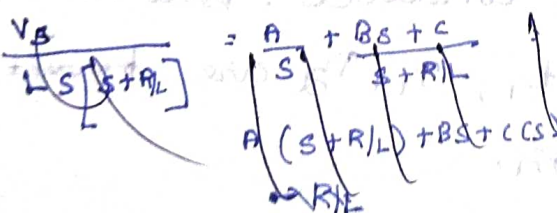 V_s / L S [S + R/L] = A / S + BS + C / S + R/L
A (S + R/L) + BS + C (S)
R/L